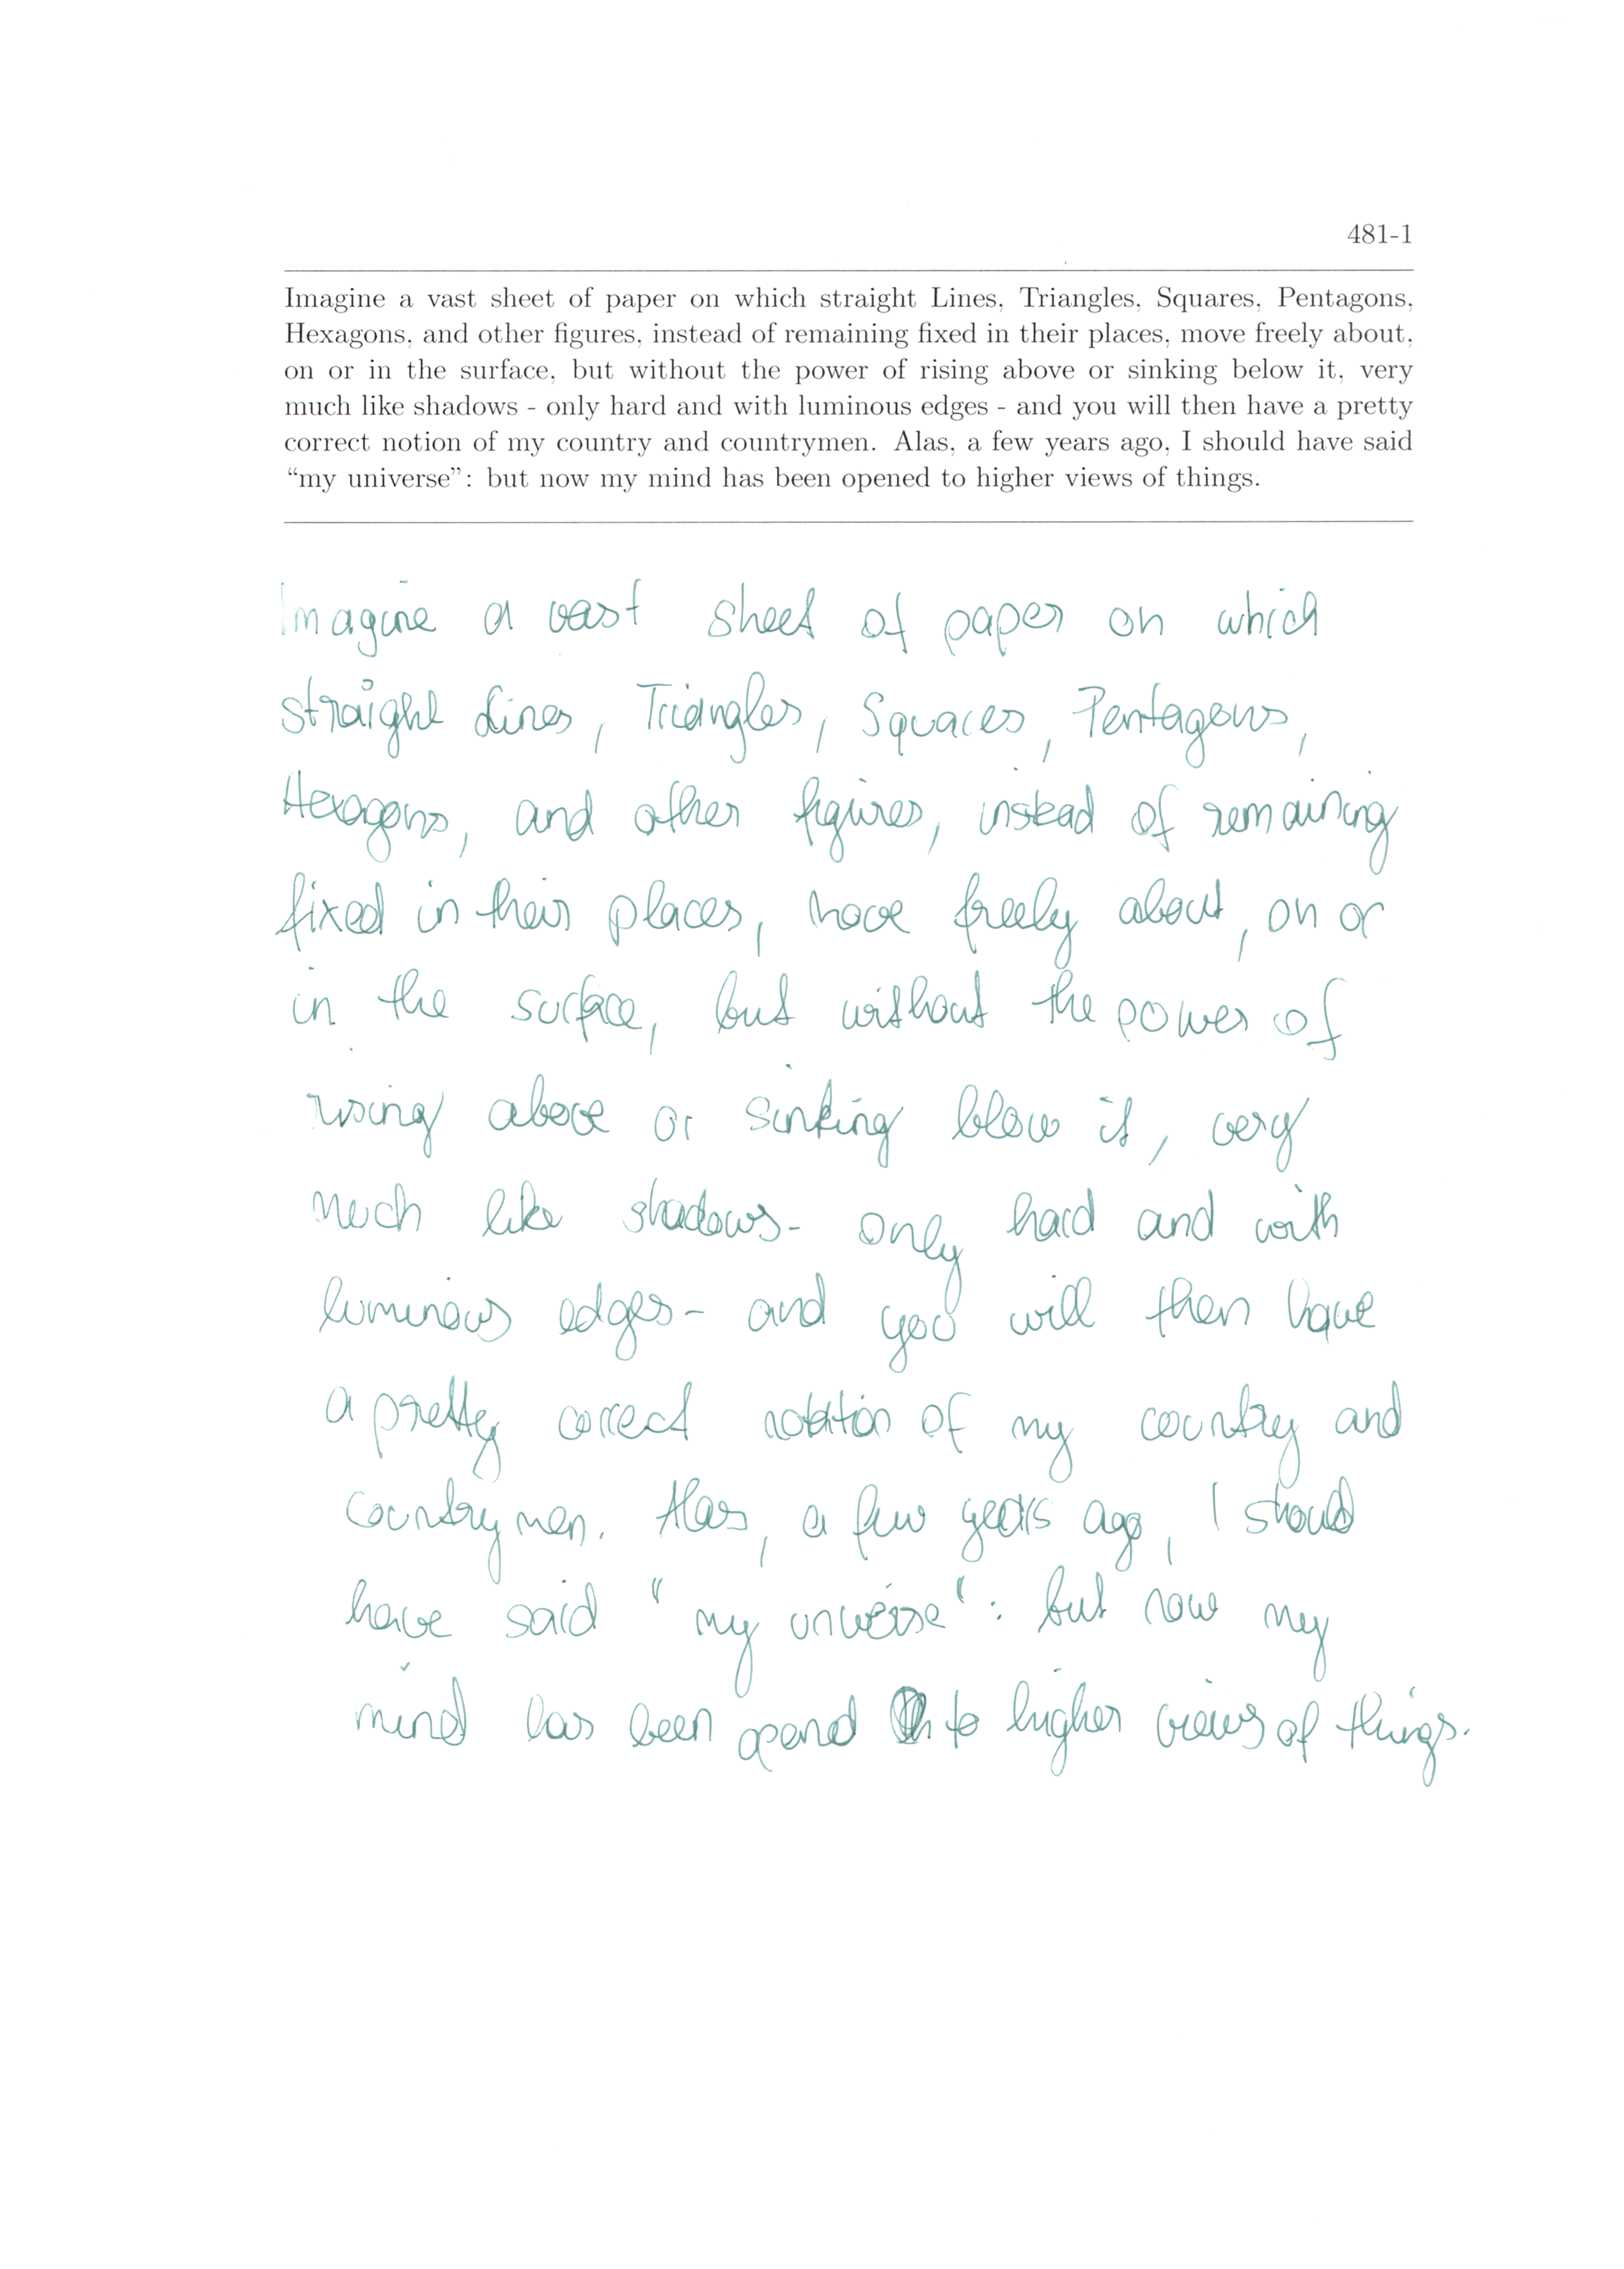 481-1
Imagine a vast sheet of paper on which straight Lines, Triangles, Squares, Pentagons,
Hexagons, and other figures, instead of remaining fixed in their places, move freely about,
on or in the surface, but without the power of rising above or sinking below it, very
much like shadows - only hard and with luminous edges - and you will then have a pretty
correct notion of my country and countrymen. Alas, a few years ago, I should have said
“my universe”: but now my mind has been opened to higher views of things.
Imagine a vast sheet of paper on which
straight Lines, Triangles, Squares, Pentagons,
Hexagons, and other figures, instead of remaining
fixed in their places, move freely about, on or
in the surface, but without the power of
rising above or sinking blow it, very
much like shadows - only hard and with
luminous edges - and you will then have
a pretty correct notion of my country and
countrymen. Alas, a few years ago, I should
have said "my universe": but now my
mind has been opend to higher views of things.